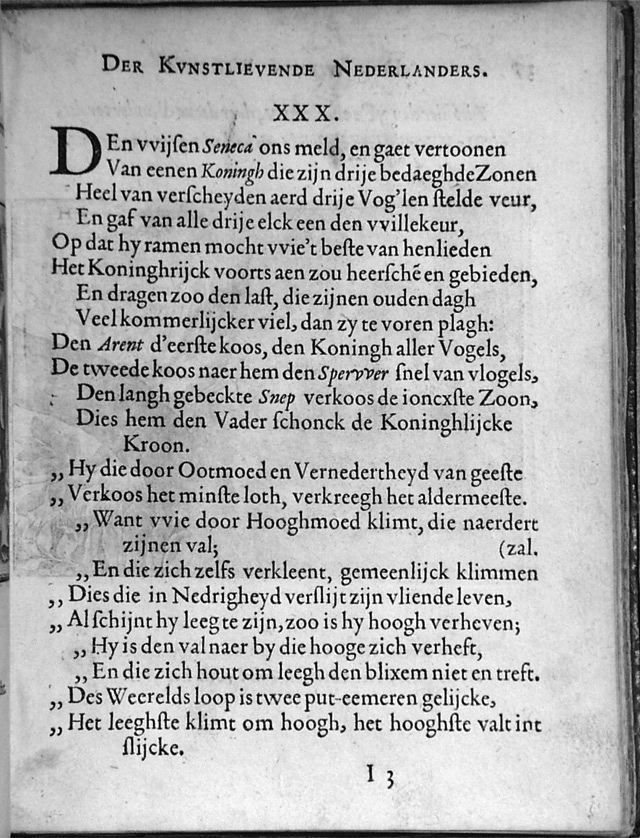 DER KVNSTLIEVENDE NEDERLANDERS.
XXX.
DEn vvijſen Seneca ons meld, en gaet vertoonen
Van eenen Koningh die zijn drije bedaeghde Zonen
Heel van verſcheyden aerd drije Vog'len ſtelde veur,
En gaf van alle drije elck een den vvillekeur,
Op dat hy ramen mocht vvie't beſte van henlieden
Het Koninghrijck voorts aen zou heerſchē en gebieden,
En dragen zoo den laſt, die zijnen ouden dagh
Veel kommerlijcker viel, dan zy te voren plagh:
Den Arent d'eerſte koos, den Koningh aller Vogels,
De tweede koos naer hem den Spervver ſnel van vlogels,
Den langh gebeckte Snep verkoos de ioncxſte Zoon,
Dies hem den Vader ſchonck de Koninghlijcke
Kroon.
„Hy die door Ootmoed en Vernedertheyd van geeſte
„Verkoos het minſte loth, verkreegh het aldermeeſte.
„Want vvie door Hooghmoed klimt, die naerdert
zijnen val; (zal.
„En die zich zelfs verkleent, gemeenlijck klimmen
„Dies die in Nedrigheyd verſlijt zijn vliende leven,
„Al ſchijnt hy leeg te zijn, zoo is hy hoogh verheven;
„Hy is den val naer by die hooge zich verheft,
„En die zich hout om leegh den blixem niet en treft.
„Des Weerelds loop is twee put-eemeren gelijcke,
„Het leeghſte klimt om hoogh, het hooghſte valt int
ſlijcke.
I 3